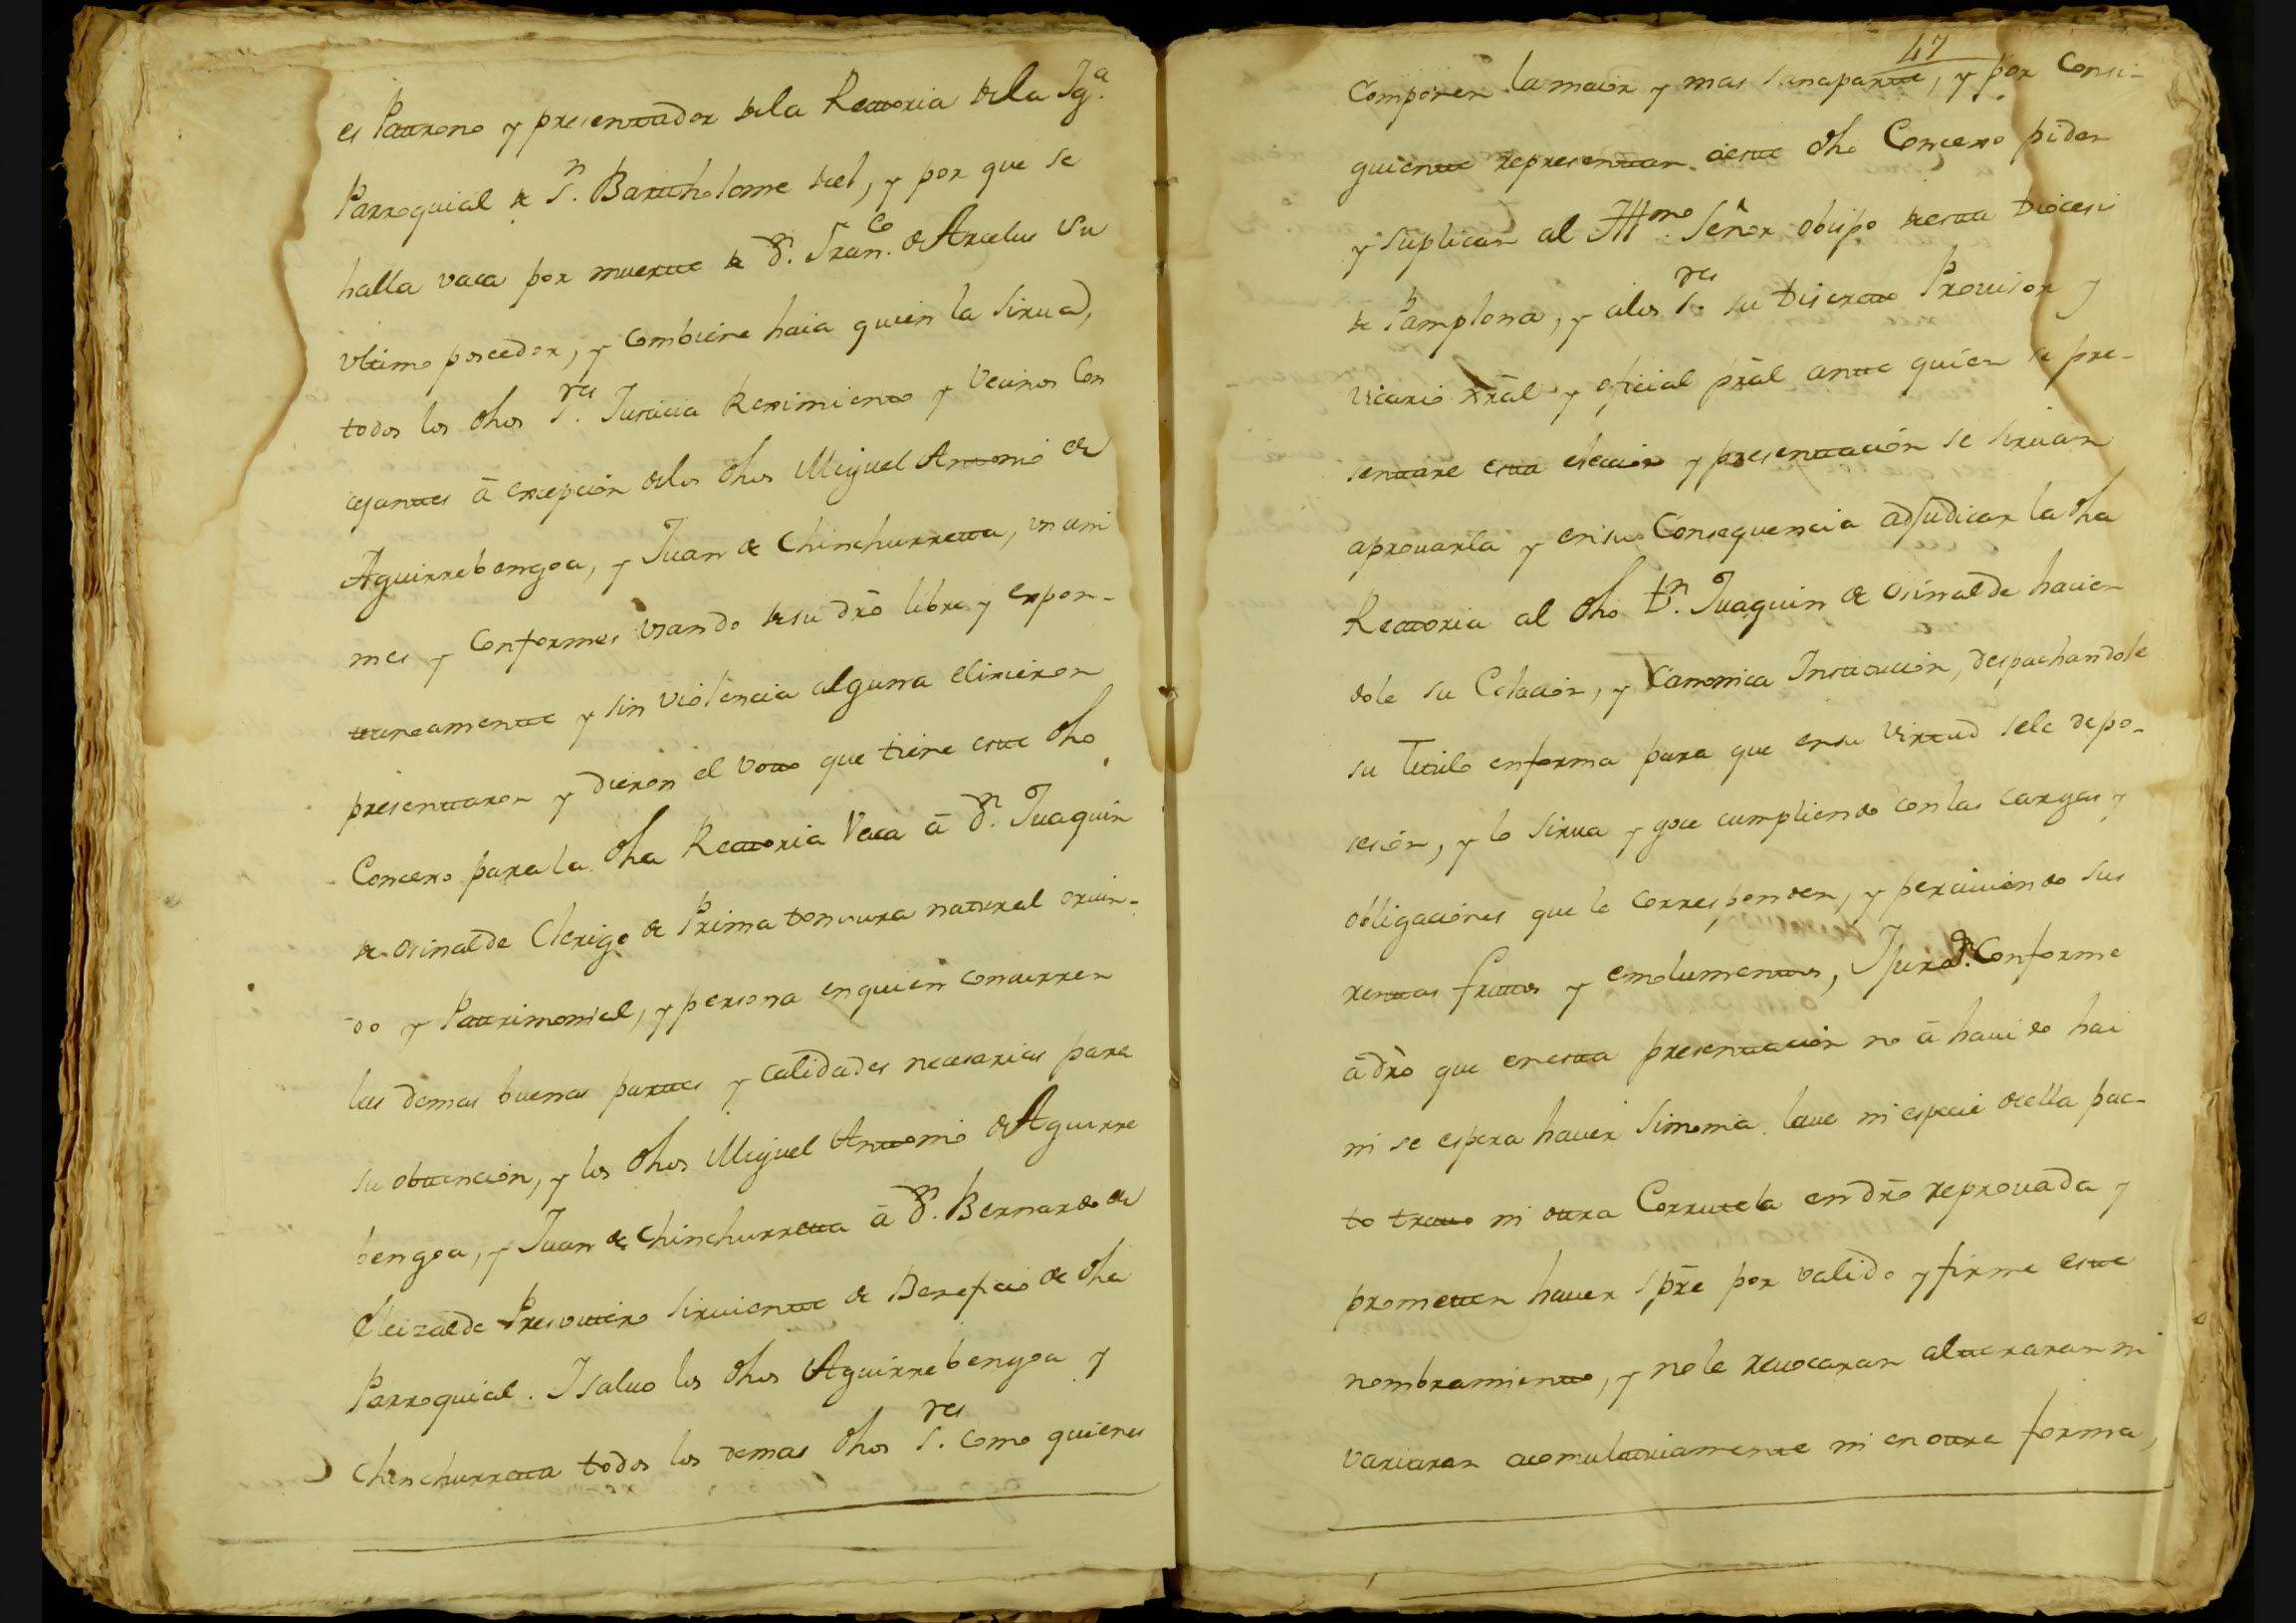 es Pattrono y presenttador dela Rectoria dela Ig.ª
Parroquial de S.n Bartholome del, y por que se
halla vaca por muertte de d.n Fran.co de Arcelus su
vltimo poseedor, y combiene haia quien la sirua,
todos los dhos S.res Justicia Reximiento y Vecinos Con
cejanttes â excepcion delos dhos Miguel Anttonio de
Aguirrebengoa, y Juan de Chinchurretta, vnani
mes y Conformes vsando de su dr̃o libre y expon-
ttaneamentte y sin violencia alguna elixieron
presenttaron y dieron el votto que tiene estte dho
Concexo para la dha Rectoria Vaca â d.n Juaquin
de Osinalde Clerigo de Prima tonsura natural oriun-
do y Pattrimonial, y persona en quien concurren
las demas buenas parttes y calidades necesarias para
su obttencion, y los dhos Miguel Anttonio de Aguirre
bengoa, y Juan de Chinchurretta â d.n Bernardo de
Eleizalde Presvittero siruientte de Beneficio de dha
Parroquial. I saluo los dhos Aguirrebengoa y
Chinchurretta todos los demas dhos S.res como quienes
47
Componen la maior y mas sana partte, y por Consi-
guientte representtan a estte dho Concexo piden
y suplican al Ill.mo Señor obispo de estta Diocesi
de Pamplona, y alos S.res su Discreto Prouisor y
vicario xr̃al y oficial pr̃al antte quien se pre-
senttare estta eleccion y presenttacion se siruan
aprouarla y en su Consequencia adjudicar la dha
Rectoria al dho D.n Juaquin de Osinalde hacien
dole su Colacion, y Canonica Institucion, despachandole
su Titulo en forma para que en su virtud sele de po-
sesion, y lo sirua y goce cumpliendo con las cargas y
obligaciones que le corresponden, y perciuiendo sus
renttas fruttos y emolumenttos, I jur.on Conforme
â dr̃o que en estta presenttacion no â hauido hai
ni se espera hauer simonia laue ni especie de ella pac-
to tratto ni ottra Corrutela en dr̃o reprouada y
prometten hauer spr̃e por valido y firme estte
nombramientto, y no le reuocaran altteraran ni
variaran acomulattiuamentte ni en ottra forma,